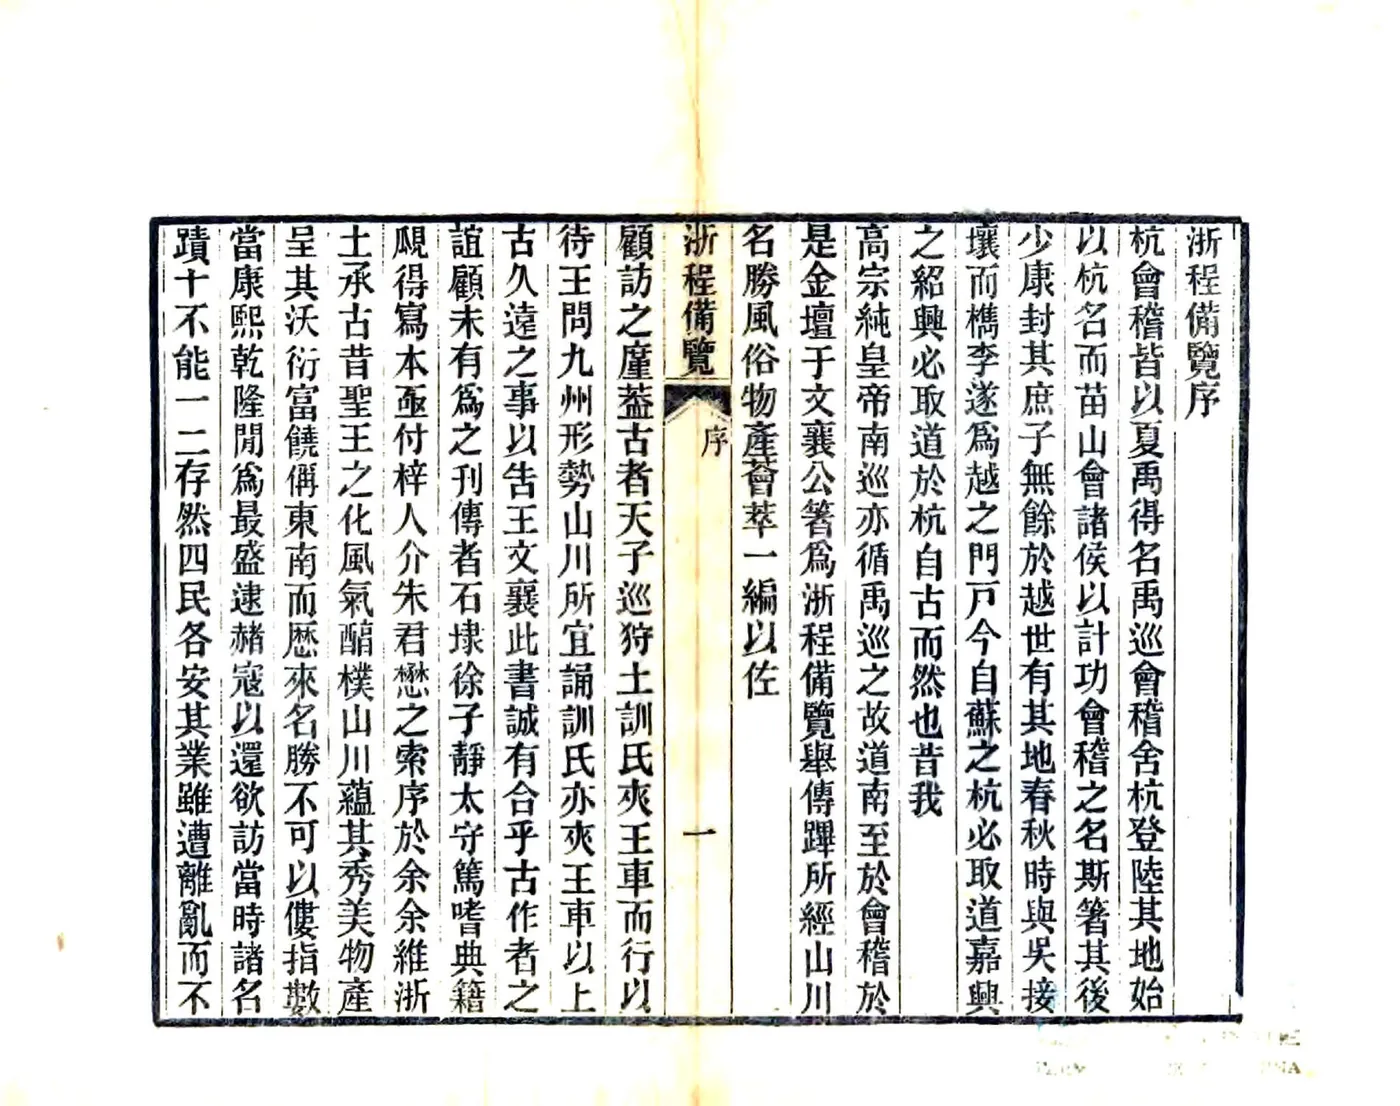 浙程備覽序
杭會稽皆以夏禹得名禹巡會稽舍杭登陸其地始
以杭名而苗山會諸侯以計功會稽之名斯箸其後
少康封其庶子無餘於越世有其地春秋時與吳接
壤而檇李遂爲越之門戸今自蘇之杭必取道嘉興
之紹興必取道於杭自古而然也昔我
高宗純皇帝南巡亦循禹巡之故道南至於會稽於
是金壇于文襄公箸爲浙程備覽舉傳蹕所經山川
名勝風俗物產薈萃一編以佐
浙程備覽
序
一
顧訪之廑葢古者天子巡狩土訓氏夾王車而行以
待王問九州形勢山川所宜誦訓氏亦夾王車以上
古久遠之事以告王文襄此書誠有合乎古作者之
誼顧未有爲之刊傳者石埭徐子靜太守篤嗜典籍
覛得寫本亟付梓人介朱君懋之索序於余余維浙
土承古昔聖王之化風氣醕樸山川蘊其秀美物產
呈其沃衍富饒偁東南而厯來名勝不可以僂指數
當康熙乾隆閒爲最盛逮赭寇以還欲訪當時諸名
蹟十不能一二存然四民各安其業雖遭離亂而不